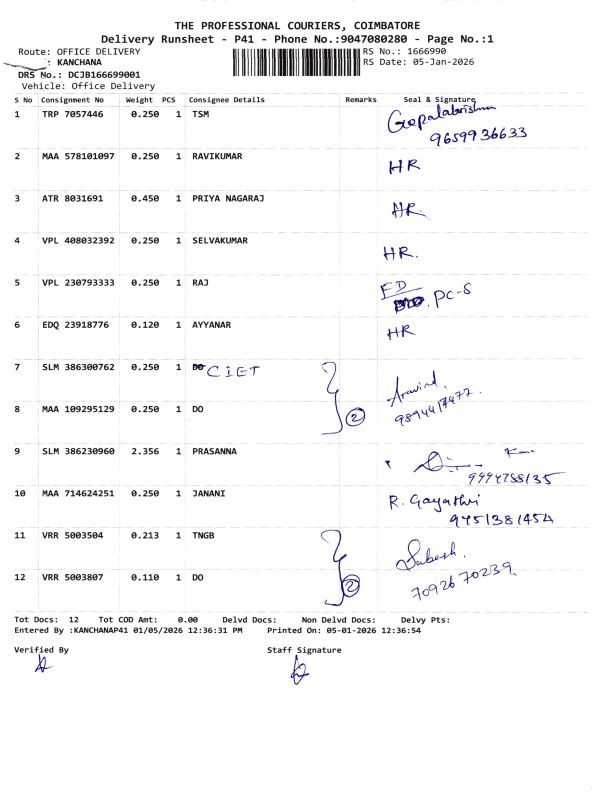 THE PROFESSIONAL COURIERS, COIMBATORE
Delivery Runsheet - P41 - Phone No.:9047080280 - Page No.:1
Route: OFFICE DELIVERY
RS No.: 1666990
: KANCHANA
RS Date: 05-Jan-2026
DRS No.: DCJB166699001
Vehicle: Office Delivery
S No Consignment No Weight PCS Consignee Details Remarks Seal & Signature
1 TRP 7057446 0.250 1 TSM Gopalakrishnan
9659936633
2 MAA 578101097 0.250 1 RAVIKUMAR HR
3 ATR 8031691 0.450 1 PRIYA NAGARAJ HR
4 VPL 408032392 0.250 1 SELVAKUMAR HR.
5 VPL 230793333 0.250 1 RAJ ED
PC-8
6 EDQ 23918776 0.120 1 AYYANAR HR
7 SLM 386300762 0.250 1 CIET Aravind.
8 MAA 109295129 0.250 1 DO 2
9 SLM 386230960 2.356 1 PRASANNA
10 MAA 714624251 0.250 1 JANANI R. Gayathri
9751381454
11 VRR 5003504 0.213 1 TNGB
12 VRR 5003807 0.110 1 DO 2 7092670239
Tot Docs: 12 Tot COD Amt: 0.00 Delvd Docs: Non Delvd Docs: Delvy Pts:
Entered By :KANCHANAP41 01/05/2026 12:36:31 PM Printed On: 05-01-2026 12:36:54
Verified By Staff Signature